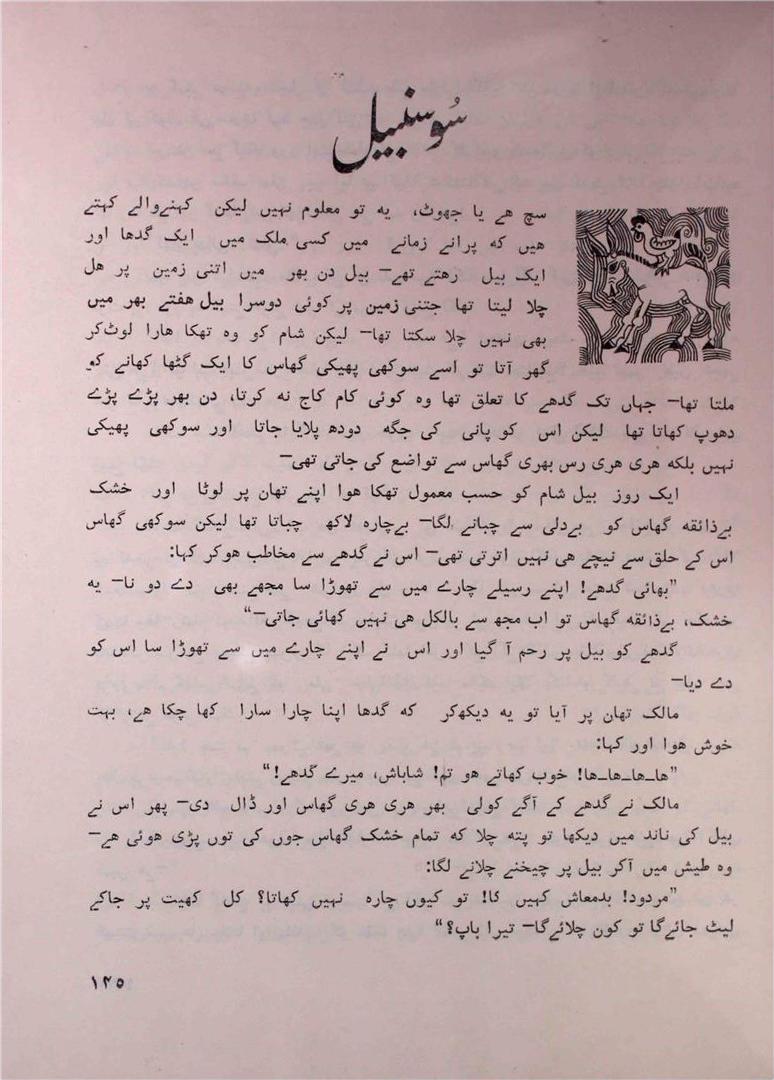 سُوسنبیل
سچ ھے یا جھوٹ، یہ تو معلوم نہیں لیکن کہنے‌والے کہتے
ھیں کہ پرانے زمانے میں کسی ملک میں ایک گدھا اور
ایک بیل رھتے تھے— بیل دن بھر میں اتنی زمین پر ھل
چلا لیتا تھا جتنی زمین پر کوئی دوسرا بیل ھفتے بھر میں
بھی نہیں چلا سکتا تھا— لیکن شام کو وہ تھکا ھارا لوٹ‌کر
گھر آتا تو اسے سوکھی پھیکی گھاس کا ایک گٹھا کھانے کو
ملتا تھا— جہاں تک گدھے کا تعلق تھا وہ کوئی کام کاج نہ کرتا، دن بھر پڑے پڑے
دھوپ کھاتا تھا لیکن اس کو پانی کی جگہ دودھ پلایا جاتا اور سوکھی پھیکی
نہیں بلکہ ھری ھری رس بھری گھاس سے تواضع کی جاتی تھی—
ایک روز بیل شام کو حسب معمول تھکا ھوا اپنے تھان پر لوٹا اور خشک
بےذائقہ گھاس کو بےدلی سے چبانے لگا— بےچارہ لاکھ چباتا تھا لیکن سوکھی گھاس
اس کے حلق سے نیچے ھی نہیں اترتی تھی— اس نے گدھے سے مخاطب ھوکر کہا:
”بھائی گدھے! اپنے رسیلے چارے میں سے تھوڑا سا مجھے بھی دے دو نا— یہ
خشک، بےذائقہ گھاس تو اب مجھ سے بالکل ھی نہیں کھائی جاتی—“
گدھے کو بیل پر رحم آ گیا اور اس نے اپنے چارے میں سے تھوڑا سا اس کو
دے دیا—
مالک تھان پر آیا تو یہ دیکھ‌کر کہ گدھا اپنا چارا سارا کھا چکا ھے، بہت
خوش ھوا اور کہا:
”ھا-ھا-ھا-ھا! خوب کھاتے ھو تم! شاباش، میرے گدھے!“
مالک نے گدھے کے آگے کولی بھر ھری ھری گھاس اور ڈال دی— پھر اس نے
بیل کی ناند میں دیکھا تو پتہ چلا کہ تمام خشک گھاس جوں کی توں پڑی ھوئی ھے—
وہ طیش میں آکر بیل پر چیخنے چلانے لگا:
”مردود! بدمعاش کہیں کا! تو کیوں چارہ نہیں کھاتا؟ کل کھیت پر جاکے
لیٹ جائےگا تو کون چلائےگا— تیرا باپ؟“
۱۲۵